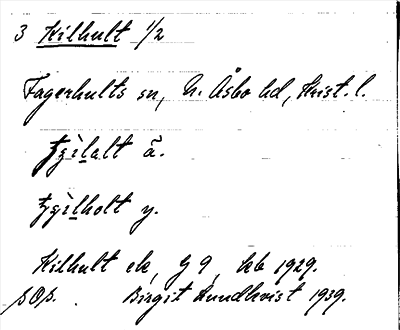 3 Kilhult 1/2
Fagerhults sn, N. Åsbo hd, Krist. l.
ʈʂìlalt ä.
ʈʂìlholt y.
Kilhult ek, G 9, kb 1929.
sOs. Birgit Lundkvist 1939.